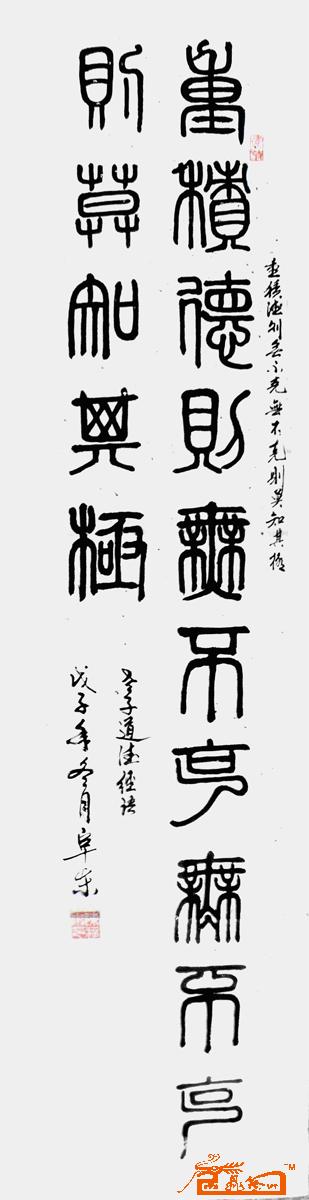 重積德則無不克無不克
則莫知其極
重積德則無不克無不克則莫知其極
老子道德經語
戊子年冬月阜東